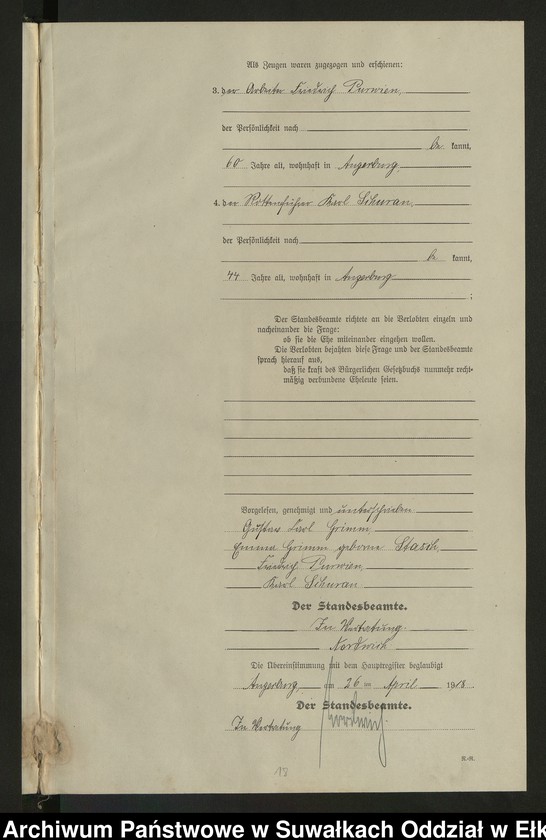 Als Zeugen waren zugezogen und erschienen:
3. der Arbeiter Friedrich Purwien,
der Persönlichkeit nach
be kannt,
60 Jahre alt, wohnhaft in Angerburg,
4. der Rottenführer Karl Sikuran,
der Persönlichkeit nach
be kannt,
44 Jahre alt, wohnhaft in Angerburg
;
Der Standesbeamte richtete an die Verlobten einzeln und
nacheinander die Frage:
ob sie die Ehe miteinander eingehen wollen.
Die Verlobten bejahten diese Frage und der Standesbeamte
sprach hierauf aus,
daß sie kraft des Bürgerlichen Gesetzbuchs nunmehr recht-
mäßig verbundene Eheleute seien.
Vorgelesen, genehmigt und unterschrieben
Gustav Karl Grimm,
Emma Grimm geborne Stasch,
Friedrich Purwien,
Karl Sikuran
Der Standesbeamte.
In Vertretung
Nordwich
Die Übereinstimmung mit dem Hauptregister beglaubigt
Angerburg, am 26 ten April 1918.
Der Standesbeamte.
In Vertretung Nordwich.
18
Archiwum Państwowe w Suwałkach Oddział w Ełk